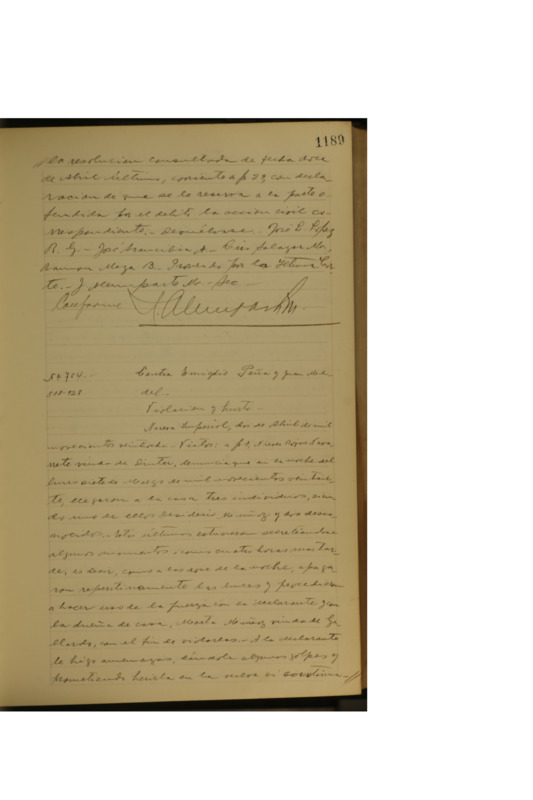 1189
la resolucion consultada de fecha doce
de Abril último, corriente a f 29, con decla
racion de que se le reserva a la parte o-
fendida por el delito la accion civil co-
rrespondiente.- Devuélvase.- José B. López
R. G.- José Arancibia A.- Ciro Salazar M.-
Ramon Meza B.- Proveido por la Iltma. Cor
te.- J. Sec.-
Conforme
Nº 704.- Contra Emigdio Peña y Juan
518-128
Violacion y hurto.-
Nueva Imperial, dos de Abril de mil
novecientos veintiocho.- Vistos: a f 1,
viuda de denuncia que en la noche del
de Marzo de mil novecientos veintisie-
te, llegaron a la casa tres individuos, sien
do uno de ellos Desiderio Muñoz y dos desco-
nocidos.- Estos últimos estuvieron
algunos momentos i como cuatro horas mas tar-
de, es decir, como a las doce de la noche, apaga
ron repentinamente las luces y procedieron
a hacer uso de la fuerza con la declarante y con
la dueña de casa, Marta Muñoz viuda de Ga
llardo, con el fin de violarlas.- A la declarante
le hizo amenazas, dándole algunos golpes y
prometiendo en la si continua-//